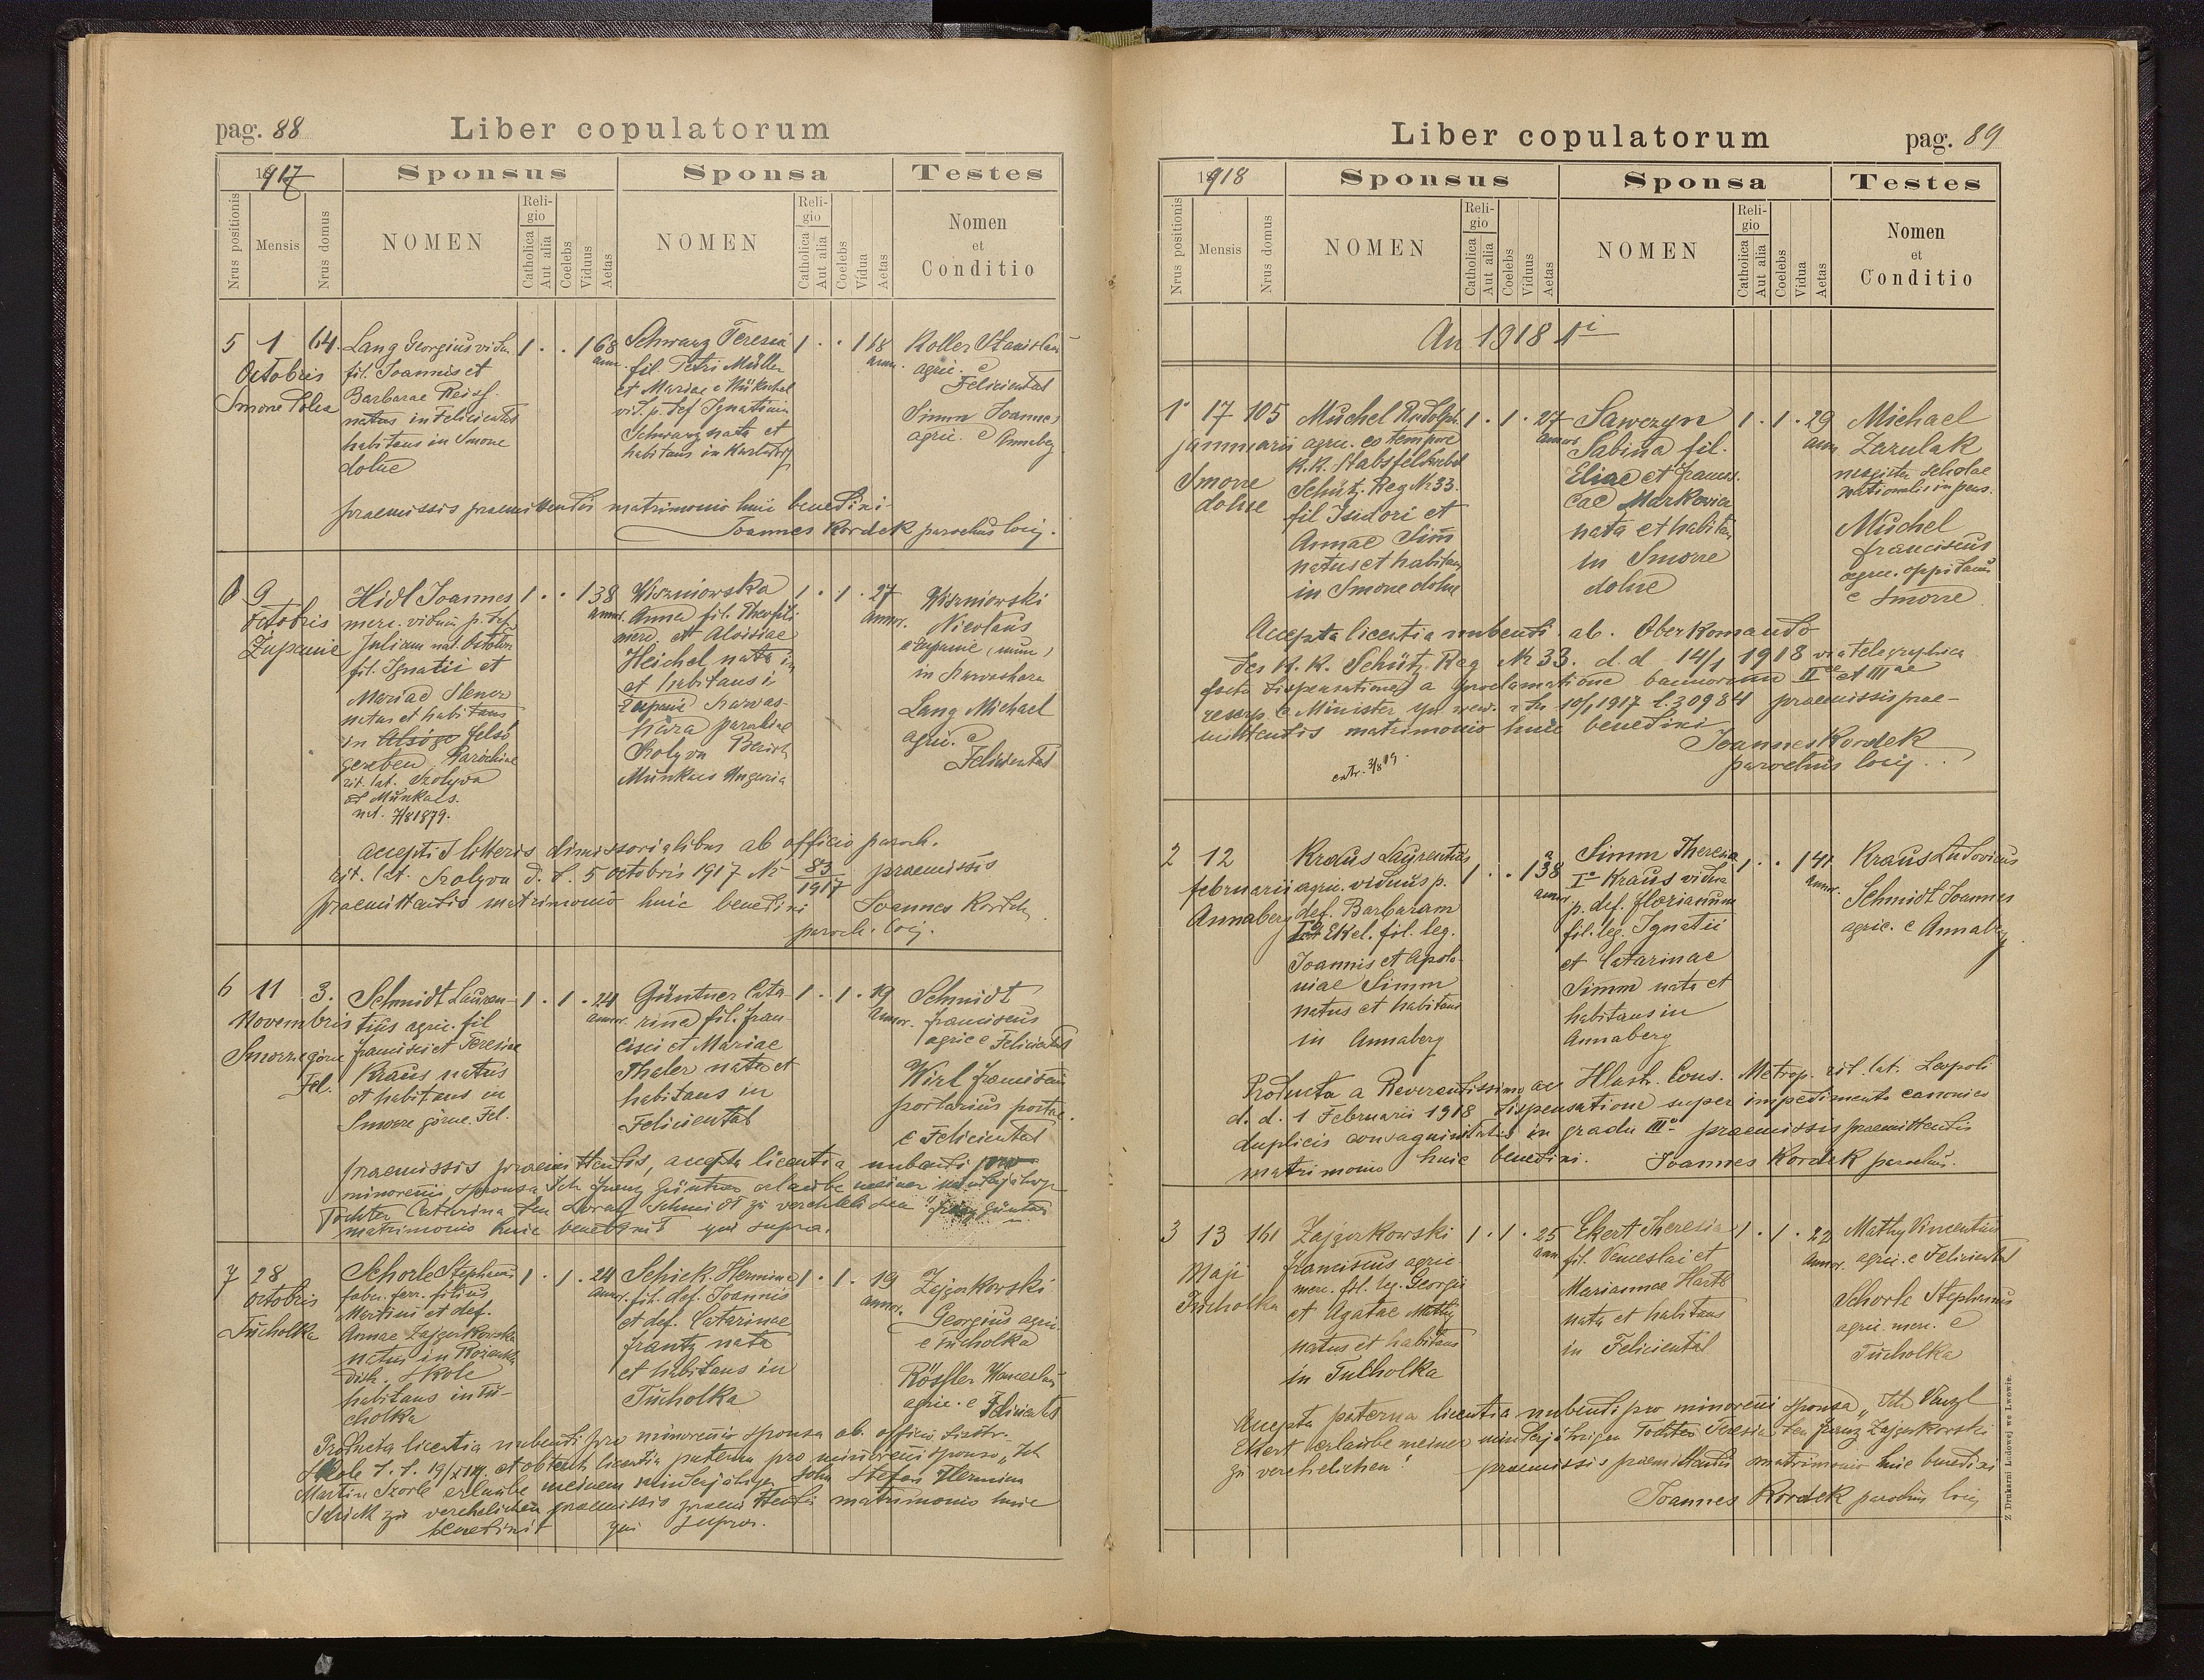 pag. 88
Liber copulatorum
1917
Sponsus
Sponsa
Testes
Nrus positionis
Mensis
Nrus domus
NOMEN
Religio
Catholica
Aut alia
Coelebs
Viduus
Aetas
NOMEN
Religio
Catholica
Aut alia
Coelebs
Vidua
Aetas
Nomen
et
Conditio
5 1 64.
Octobris
Smorze Dolne
Lang Georgius vidu.
fil. Joannis et
Barbarae Reisf.
natus in Felicienthal
habitans in Smorze
dolne
1 . . 1 68
ann.
Schwarz Teresia
fil. Petri Müller
et Mariae
vid. p. def Ignatium
Schwarz nata et
habitans in Karlsdorf
1 . . 1
ann.
Koller Stanislaus
agric. e
Felicientel
Simm Joannes
agric. e Annaberg
praemissis praemittendis matrimonio huic benedixi
Joannes Kordek parochus loci.
9
Octobris
Zupanie
Hidl Joannes
merc. viduus p. def
Julian nat.
fil. Ignatii et
Mariae
natus et habitans
in Alsóge felső
gereben Parochiae
rit. lat. Szolyva
ad Munkacs.
nat. 7/8 1879.
1 . . 1 38
annor.
Wiszniowska
Anna fil. Theofili
merc. et Aloisiae
Heichel nata in
et habitans i
Zupanie
parochiae
Szolyva
Munkacs Ungaria
1 . 1 . 27
annor.
Wiszniowski
Nicolaus
e Zupanie (nunc)
in
Lang Michael
agric. e
Felicientel
acceptis litteris dimissorialibus ab officio paroch.
rit. lat. Szolyva d. d. 5 octobris 1917 No 83/1917 praemissis
praemittentis matrimonio huic benedixi Joannes Kordek
paroch. loci.
6 11 3.
Novembris
Smorze górne
Fel.
Schmidt Lauren-
tius agric. fil
Francisci et Teresiae
Kraus natus
et habitans in
Smorze górne Fel.
1 . 1 . 24
annor.
Güntner Cata-
rina fil. Fran-
cisci et Mariae
Thaler nata et
habitans in
Felicientel
1 . 1 . 19
annor.
Schmidt
Franciscus
agric e Felicientel
Wirl Franciscus
portarius postae
e Felicientel
praemissis praemittentis, accepta licentia nubendi pro
minorenni sponsa Ich Franz Güntner erlaube meiner minderjähr.
Tochter Catharina den Lorenz Schmidt zu verehelichen" Franz Güntner
matrimonio huic benedixit qui supra.
7 28
octobris
Tucholka
Schorle Stephanus
faber. ferr. filius
Martini et def.
Annae Zajgorkowska
natus in Rozanka
distr. Skole
habitans in Tu-
cholka
1 . 1 . 24
annor.
Schick Hermina
fil. def. Joannis
et def. Catarinae
Frantz nata
et habitans in
Tucholka
1 . 1 . 19
annor.
Zajgorkowski
Georgius agric.
e Tucholka
Rössler Wenceslaus
agric. e Felicientel
Producta licentia nubendi pro minorenni sponsa ab officio distr.
Skole d. d. et obtenta licentia paterna pro minorenni sponso „Ich
Martin Szorle erlaube meinem minderjährigen Sohn Stefan Hermina
Schick zu verehelichen praemissis praemittentis matrimonio huic
benedixit qui supra.
Liber copulatorum
pag. 89
1918
Sponsus
Sponsa
Testes
Nrus positionis
Mensis
Nrus domus
NOMEN
Religio
Catholica
Aut alia
Coelebs
Viduus
Aetas
NOMEN
Religio
Catholica
Aut alia
Coelebs
Vidua
Aetas
Nomen
et
Conditio
An 1918 Di
1 17 105
januarii
Smorze
dolne
Muchel Rudolph.
agric. eo tempore
K.K. Stabsfeldwebel
Schütz. Reg No 33.
fil Isidori et
Annae Simm
natus et habitans
in Smorze dolne
1 . 1 . 27
annor
Sawczyn
Sabina fil.
Eliae et francis-
cae Markowicz
nata et habitans
in Smorze
dolne
1 . 1 . 29
ann
Michael
Zarulak
magister scholae
nationalis in pens.
Muchel
franciscus
agric. oppidanus
e Smorze
Accepta licentia nubendi ab. Oberkomando
des K. K. Schütz. Reg No 33. d. d 14/1 1918 via telegraphica
facta dispensatione a proclamatione bannorum IIae et IIIae
rescrp. e Minister spr wew. z dn 10/1 1917 l. 30984 praemissis prae-
mittentis matrimonio huic benedixi
Joannes Kordek
parochus loci.
extr. 3/8 19.
2 12
februarii
Annaberg
Kraus Laurentius
agric. viduus p.
def. Barbaram
Ekel. fil. leg.
Joannis et Apolo-
niae Simm
natus et habitans
in Annaberg
1 . . 1 38
annor
Simm Theresia
Io Kraus vidua
p. def. florianum
fil. leg. Ignatii
et Catarinae
Simm nata et
habitans in
Annaberg
1 . . 1 41
annor.
Kraus Ludovicus
Schmidt Joannes
agric. e Annaberg
Producta a Reverendissimo ac Illustr. Cons. Metrop. rit. lat. Leopoli
d. d. 1 Februarii 1918 dispensatione super impedimento canonico
duplicis consaguinitatis in gradu IIIo praemissis praemittentis
matrimonio huic benedixi. Joannes Kordek parochus.
3 13 161
Maji
Tucholka
Zajgorkowski
Franciscus agric
merc. fil. leg. Georgii
et Agatae Mathy
natus et habitans
in Tucholka
1 . 1 . 25
ann
Ekert Theresia
fil. Venceslai et
Mariannae Hartl
nata et habitans
in Felicientel
1 . 1 . 22
annor.
Mathy Vincentius
agric. e Felicientel
Schorle Stephanus
agric. merc. e
Tucholka
Accepta paterna licentia nubendi pro minorenni sponsa „Ich Venzl
Ekert erlaube meiner minderjährigen Tochter Teresia den Franz Zajgorkowski
zu verehelichen! praemissis praemittentis matrimonio huic benedixi
Joannes Kordek parochus loci
Z Drukarni Ludowej we Lwowie.